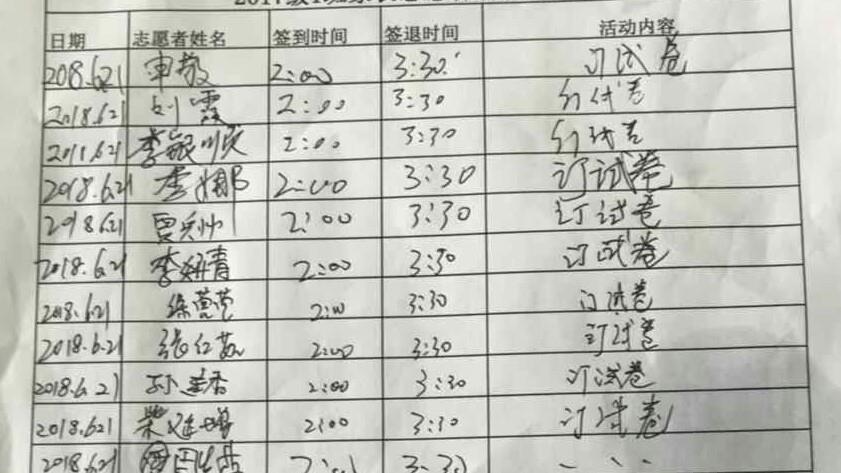 日期 志愿者姓名 签到时间 签退时间 活动内容
2018.6.21 申敬 2:00 3:30 订试卷
2018.6.21 刘霞 2:00 3:30 订试卷
2018.6.21 李银顺 2:00 3:30 订试卷
2018.6.21 李娜 2:00 3:30 订试卷
2018.6.21 2:00 3:30 订试卷
2018.6.21 李妍青 2:00 3:30 订试卷
2018.6.21 徐莹莹 2:00 3:30 订试卷
2018.6.21 张红 2:00 3:30 订试卷
2018.6.21 孙 香 2:00 3:30 订试卷
2018.6.21 柴延 2:00 3:30 订试卷
2018.6.21 2:00 3:30